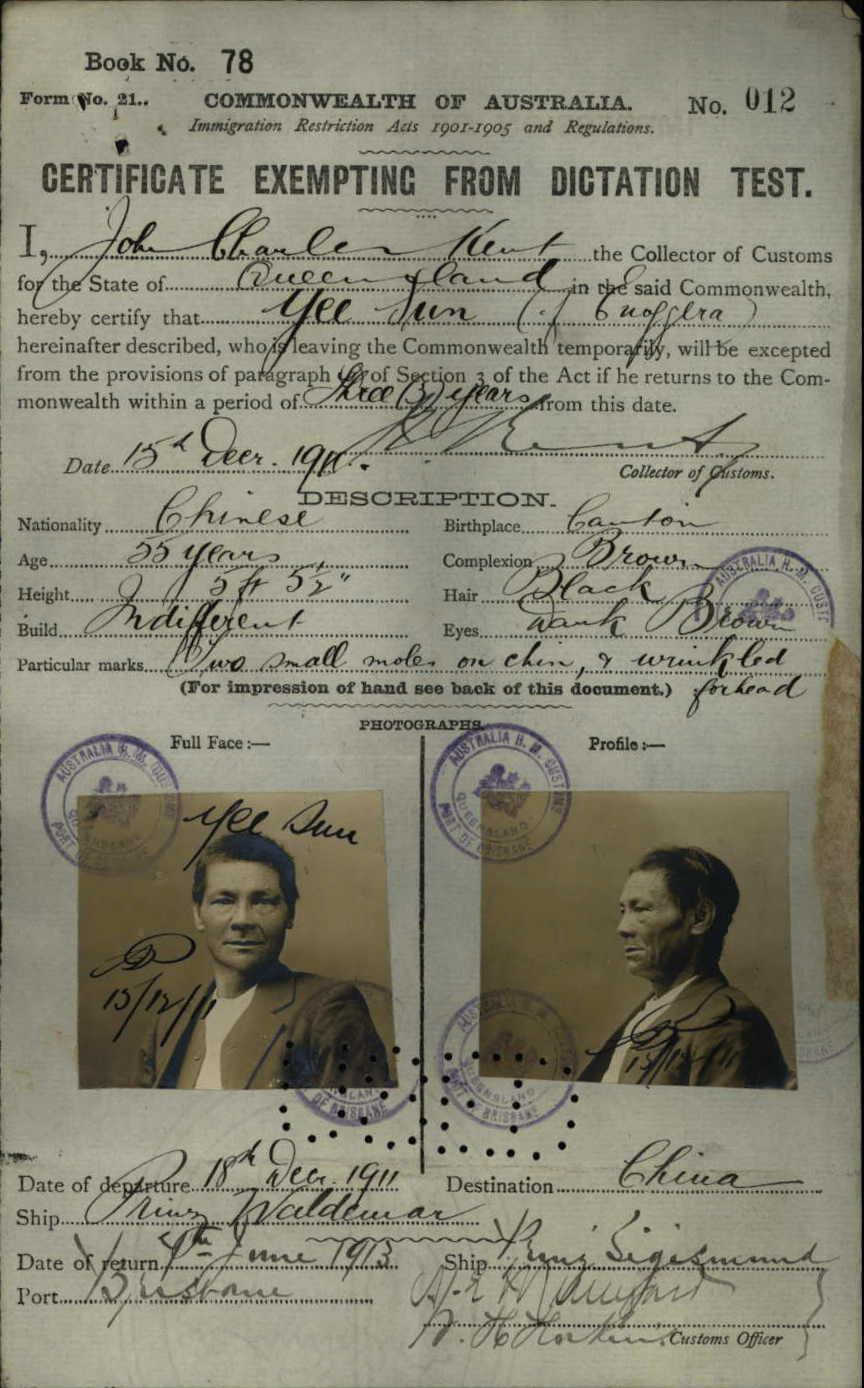 Book No. 78
Form No. 21.. COMMONWEALTH OF AUSTRALIA. No. 012
Immigration Restriction Acts 1901-1905 and Regulations.
CERTIFICATE EXEMPTING FROM DICTATION TEST.
I, John Charles Kent the Collector of Customs
for the State of Queensland in the said Commonwealth,
hereby certify that Yee Sun (of Enoggera)
hereinafter described, who is leaving the Commonwealth temporarily, will be excepted
from the provisions of paragraph of Section 3 of the Act if he returns to the Com-
monwealth within a period of Three (3) years from this date.
Date 15th Decr. 1911. Kent
Collector of Customs.
DESCRIPTION.
Nationality Chinese Birthplace Canton
Age 55 years Complexion Brown
Height 5 ft 5½" Hair Black
Build Indifferent Eyes Dark Brown
Particular marks Two small moles on chin, & wrinkled
(For impression of hand see back of this document.) forhead
PHOTOGRAPHS.
Full Face :— Profile :—
AUSTRALIA H. M. CUSTOMS QUEENSLAND PORT OF BRISBANE
Yee Sun
15/12/11
15/12/11
Date of departure 18th Decr. 1911 Destination China
Ship Prinz Waldemar
Date of return June 1913 Ship Prinz Sigismund
Port Brisbane
Customs Officer